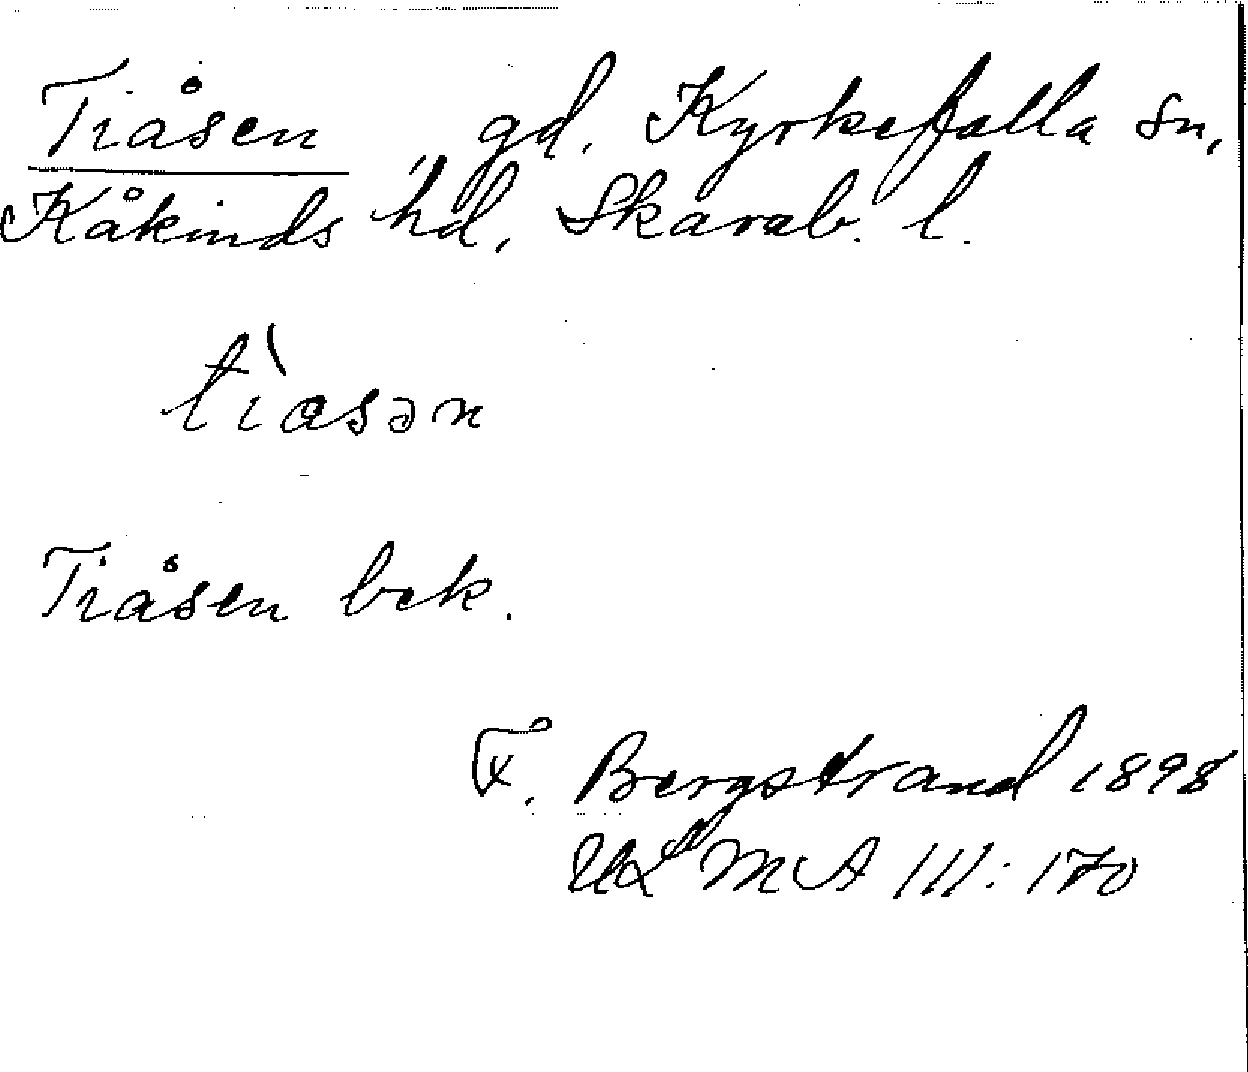 Tiåsen, gd. Kyrkefalla sn,
Kåkinds hd, Skarab. l.
tìasən
Tiåsen bek.
F. Bergstrand 1898
ULMA 111:170